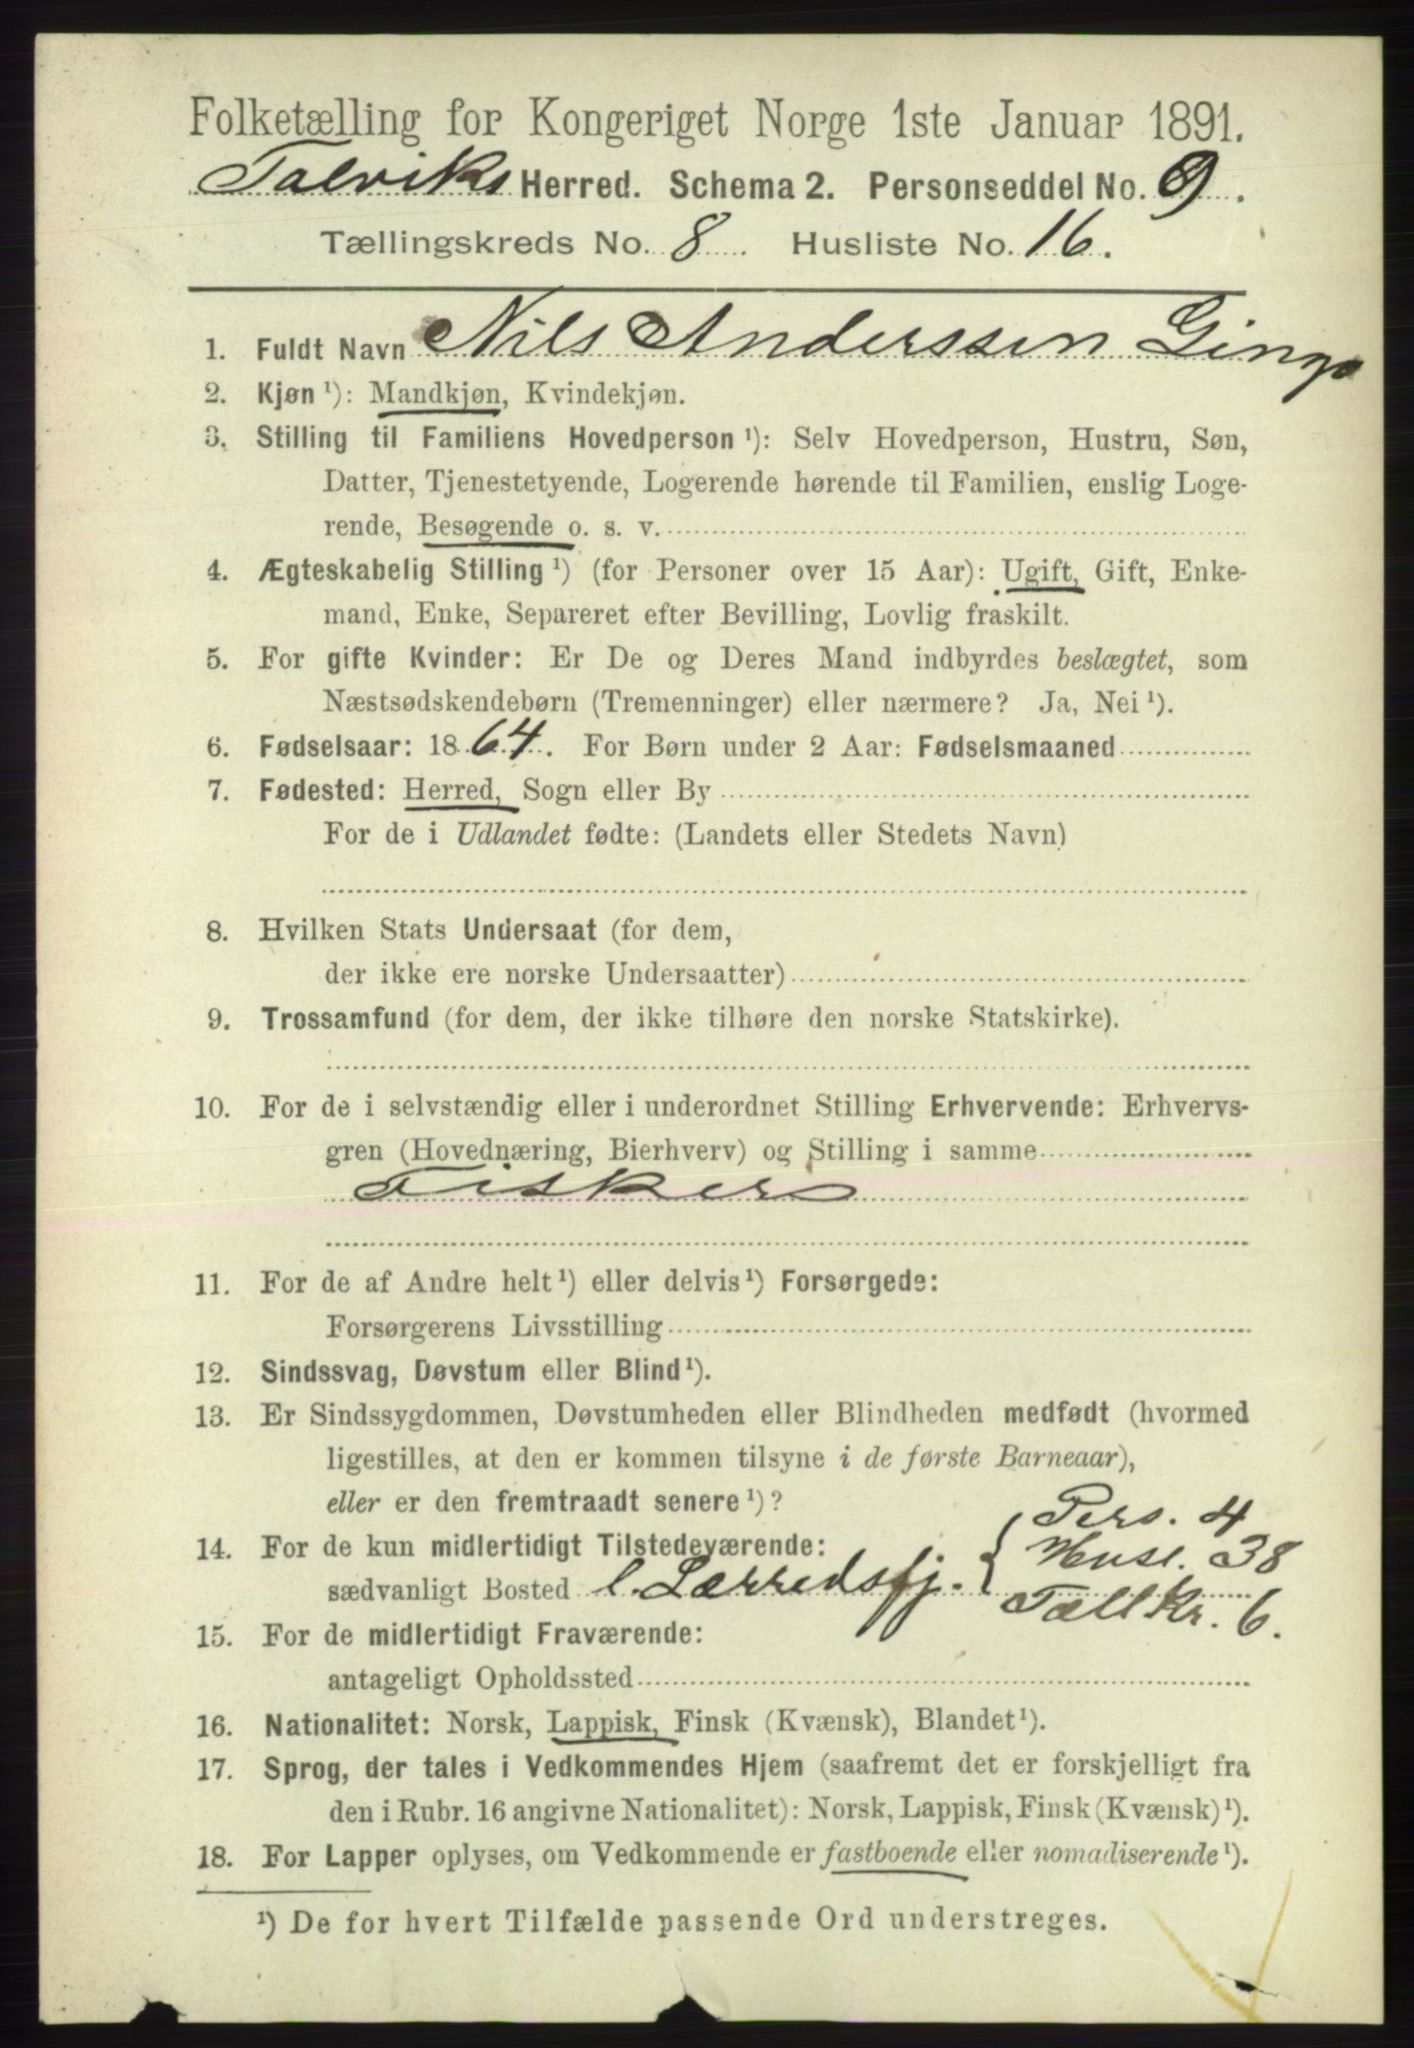 Folketælling for Kongeriget Norge 1ste Januar 1891.
Talviks Herred. Schema 2. Personseddel No. 9.
Tællingskreds No. 8. Husliste No. 16.
1. Fuldt Navn Nils Anderssen
2. Kjøn ¹): Mandkjøn, Kvindekjøn.
3. Stilling til Familiens Hovedperson ¹): Selv Hovedperson, Hustru, Søn,
Datter, Tjenestetyende, Logerende hørende til Familien, enslig Loge-
rende, Besøgende o. s. v.
4. Ægteskabelig Stilling ¹) (for Personer over 15 Aar): Ugift, Gift, Enke-
mand, Enke, Separeret efter Bevilling, Lovlig fraskilt.
5. For gifte Kvinder: Er De og Deres Mand indbyrdes beslægtet, som
Næstsødskendebørn (Tremenninger) eller nærmere? Ja, Nei ¹).
6. Fødselsaar: 1864. For Børn under 2 Aar: Fødselsmaaned
7. Fødested: Herred, Sogn eller By
For de i Udlandet fødte: (Landets eller Stedets Navn)
8. Hvilken Stats Undersaat (for dem,
der ikke ere norske Undersaatter)
9. Trossamfund (for dem, der ikke tilhøre den norske Statskirke).
10. For de i selvstændig eller i underordnet Stilling Erhvervende: Erhvervs-
gren (Hovednæring, Bierhverv) og Stilling i samme
Fisker
11. For de af Andre helt ¹) eller delvis ¹) Forsørgede:
Forsørgerens Livsstilling
12. Sindssvag, Døvstum eller Blind ¹).
13. Er Sindssygdommen, Døvstumheden eller Blindheden medfødt (hvormed
ligestilles, at den er kommen tilsyne i de første Barneaar),
eller er den fremtraadt senere ¹)?
Pers. 4
14. For de kun midlertidigt Tilstedeværende: Husl. 38
sædvanligt Bosted l. Lærredsfj. { Tællkr. 6.
15. For de midlertidigt Fraværende:
antageligt Opholdssted
16. Nationalitet: Norsk, Lappisk, Finsk (Kvænsk), Blandet ¹).
17. Sprog, der tales i Vedkommendes Hjem (saafremt det er forskjelligt fra
den i Rubr. 16 angivne Nationalitet): Norsk, Lappisk, Finsk (Kvænsk) ¹).
18. For Lapper oplyses, om Vedkommende er fastboende eller nomadiserende ¹).
¹) De for hvert Tilfælde passende Ord understreges.